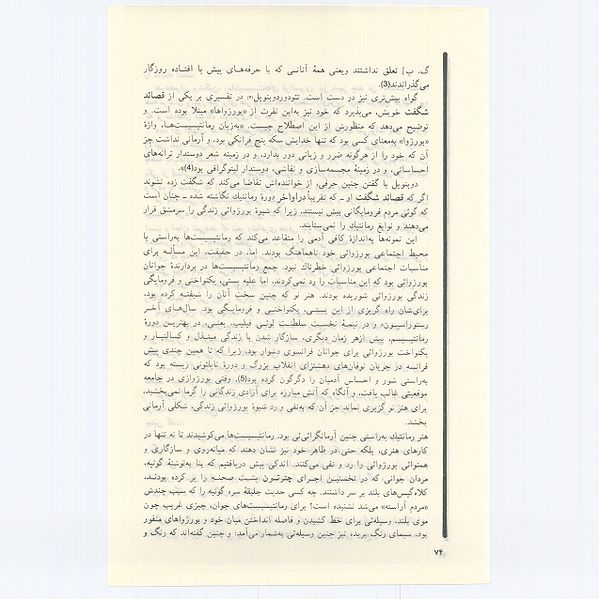 گ. ب] تعلق نداشتند ویعنی همهٔ آنانسی که با حرفه‌های پیش پا افتاده روزگار
می‌گذراندند(3).
گواه بیش‌تری نیز در دست است. تئودوردوبنویل در تفسیری بر یکی از قصائد
شگفت خویش، می‌پذیرد که خود نیز به‌این نفرت از «بورژواها» مبتلا بوده است. و
توضیح می‌دهد که منظورش از این اصطلاح چیست. «به‌زبان رمانتیسیست‌ها، واژهٔ
«بورژوا» به‌معنای کسی بود که تنها خدایش سکه پنج فرانکی بود، و آرمانی نداشت جز
آن که خود را از هرگونه ضرر و زیانی دور بدارد، و در زمینه شعر دوستدار ترانه‌های
احساساتی، و در زمینهٔ مجسمه‌سازی و نقاشی، دوستدار لیتوگرافی بود(4)».
دوبنویل با گفتن چنین حرفی، از خواننده‌اش تقاضا می‌کند که شگفت زده نشوند
اگر که قصائد شگفت او ـ که تقریباً دراواخر دورهٔ رمانتیك نگاشته شده ـ چنان است
که گوئی مردم فرومایگانی بیش نیستند، زیرا که شیوهٔ بورژوائی زندگی را سرمشق قرار
می‌دهند و نوابغ رمانتیك را نمی‌ستایند.
این نمونه‌ها به‌اندازهٔ کافی آدمی را متقاعد می‌کند که رمانتیسیست‌ها به‌راستی با
محیط اجتماعی بورژوائی خود ناهماهنگ بودند. اما، در حقیقت، این مسأله برای
مناسبات اجتماعی بورژوائی خطرناك نبود. جمع رمانتیسیست‌ها در بردارندهٔ جوانان
بورژوائی بود که این مناسبات را رد نمی‌کردند، اما علیه پستی، یکنواختی و فرومایگی
زندگی بورژوائی شوریده بودند. هنر نو که چنین سخت آنان را شیفته کرده بود،
برای‌شان راه گریزی از این پستی، یکنواختی و فرومایگی بود. سال‌های آخر
رستوراسیون، و در نیمهٔ نخست سلطنت لوئی فیلیپ، یعنی، در بهترین دورهٔ
رمانتیسیسم، بیش ازهر زمان دیگری، سازگار شدن با زندگی مبتذل و کسالتبار و
یکنواخت بورژوائی برای جوانان فرانسوی دشوار بود، زیرا که تا همین چندی پیش
فرانسه در جریان توفان‌های دهشتزای انقلاب بزرگ و دورهٔ ناپلئونی زیسته بود که
به‌راستی شور و احساس آدمیان را دگرگون کرده بود(5). وقتی بورژوازی در جامعه
موقعیتی غالب یافت، و آنگاه که آتش مبارزه برای آزادی زندگانی را گرما نمی‌بخشید،
برای هنر نو گزیری نماند جز آن که به‌نفی و رد شیوهٔ بورژوائی زندگی، شکلی آرمانی
بخشد.
هنر رمانتیك به‌راستی چنین آرمانگرائی‌ئی بود. رمانتیسیست‌ها می‌کوشیدند تا نه تنها در
کارهای هنری، بلکه حتی در ظاهر خود نیز نشان دهند که میانه‌روی و سازگاری و
همنوائی بورژوائی را رد و نفی می‌کنند. اندکی پیش دریافتیم که بنا به‌نوشتهٔ گوتیه،
مردان جوانی که در نخستین اجرای چترتون پشت صحنه را پر کرده بودند،
کلاه‌گیس‌های بلند بر سر داشتند. چه کسی حدیث جلیقهٔ سره گوتیه را که سبب چندش
«مردم آراسته» می‌شد نشنیده است؟ برای رمانتیسیست‌های جوان، چیزی غریب چون
موی بلند، وسیله‌ئی برای خط کشیدن و فاصله انداختن میان خود و بورژواهای منفور
بود. سیمای رنگ پریده نیز چنین وسیله‌ئی به‌شمار می‌آمد: و چنین گفته‌اند که رنگ و
۷۴